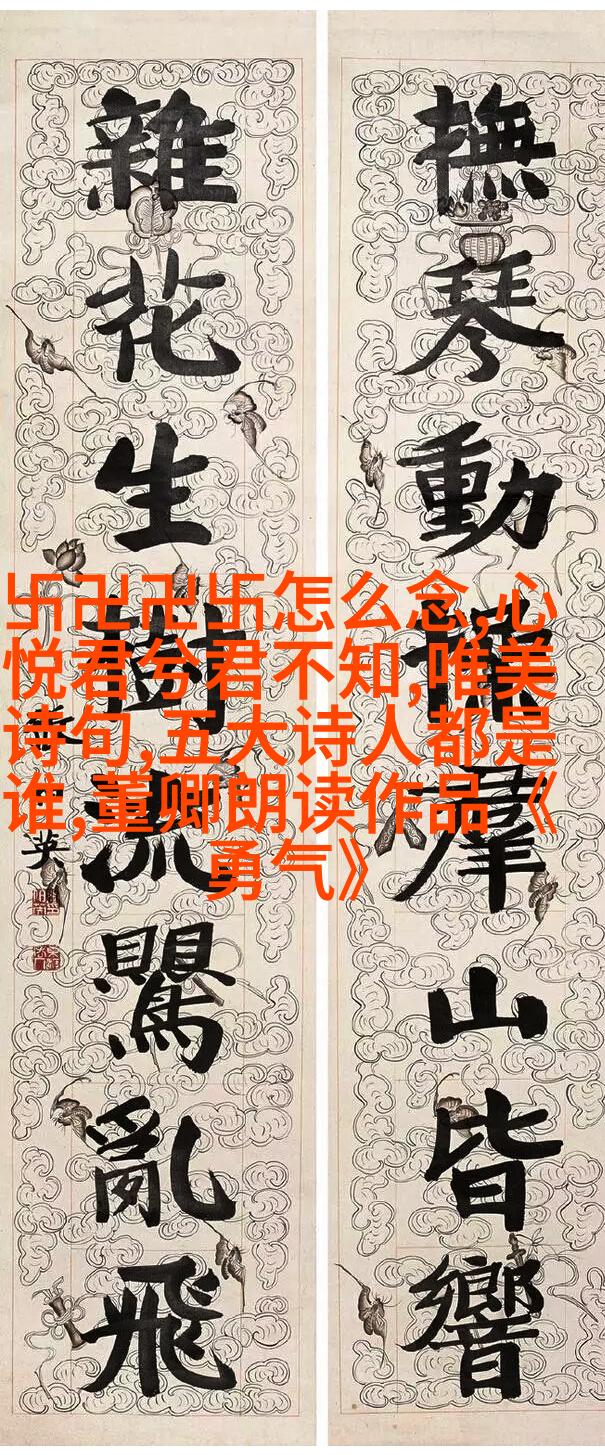 撫琴動操羣山皆響
雜花生樹流鸎亂飛
英
卐卍卍卐怎么念,心
悦君兮君不知,唯美
诗句,五大诗人都是
谁,董卿朗读作品《
勇气》